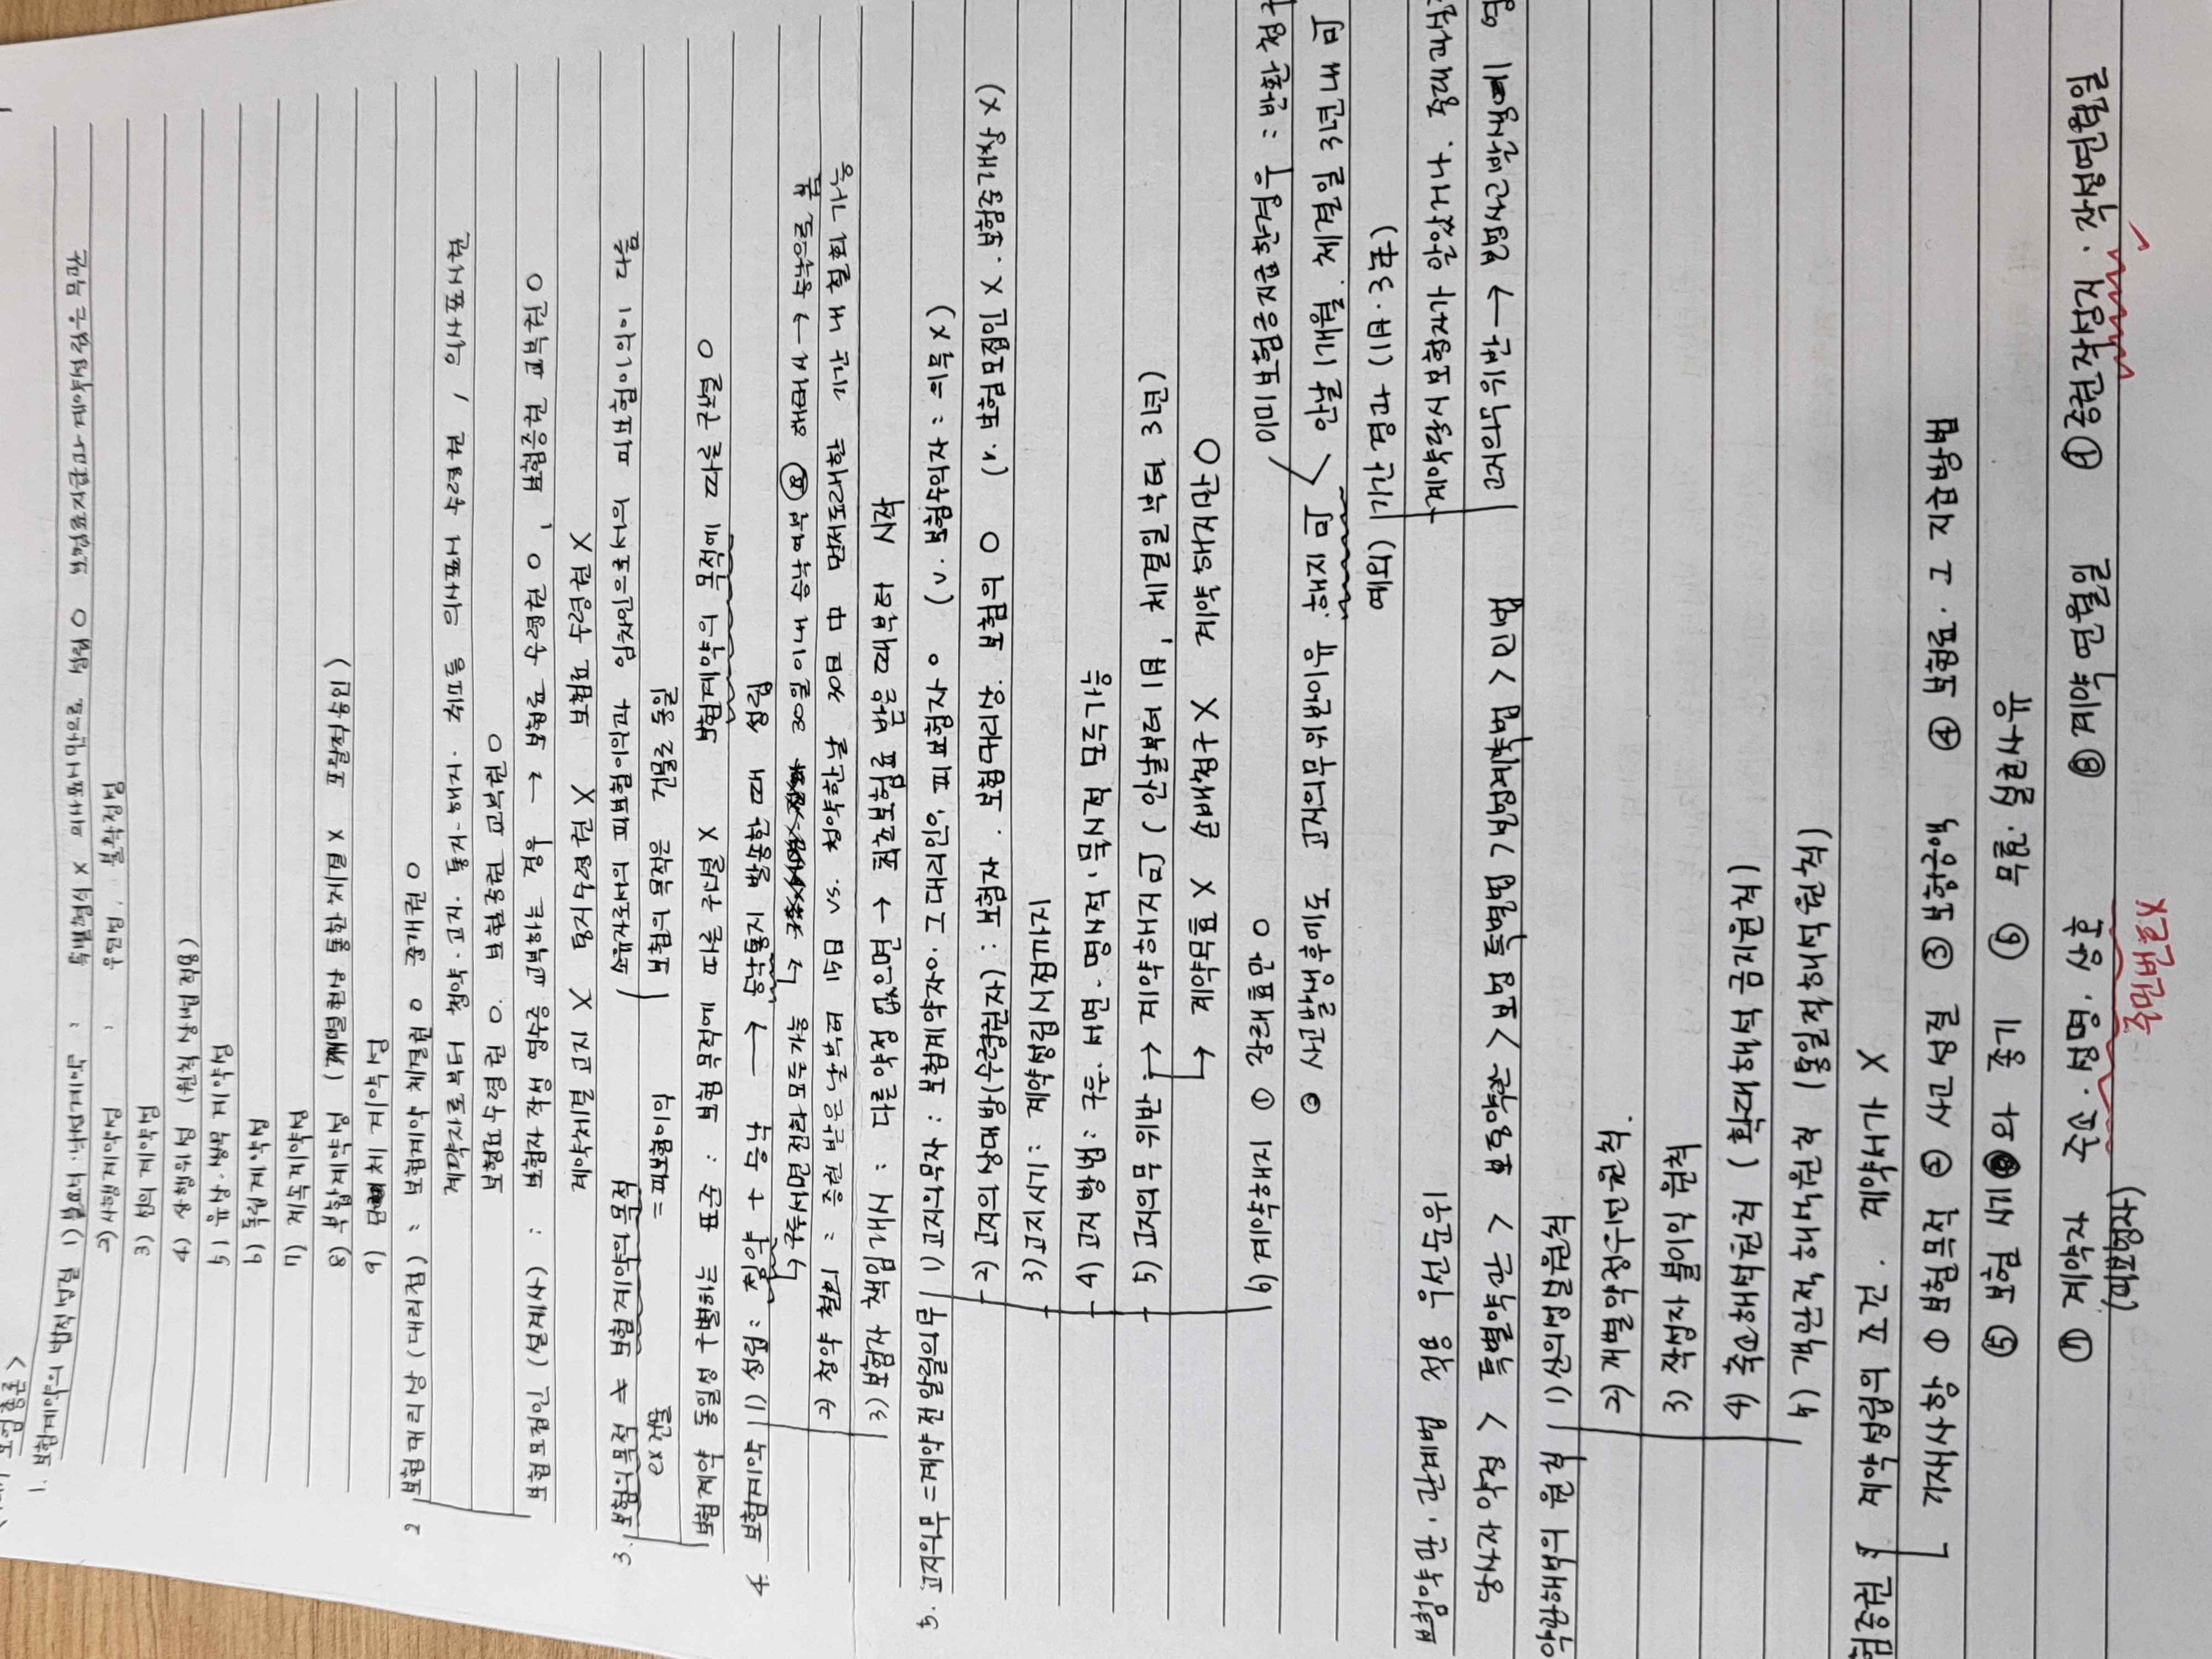 보험총론>
1. 보험계약의 법적 성질 1) 불요식 낙성계약 : 특별형식 X 의사표시만으로 성립 O 보험료지급이나 계약성립과는 무관
2) 사행계약성 : 우연성, 불확정성
3) 선의계약성
4) 상행위성 (원칙 상법 적용)
5) 유상·쌍무 계약성
6) 독립계약성
7) 계속계약성
8) 부합계약성 (개별협상 통한 체결 X 포괄적승인)
9) 단체 계약성
2 보험대리상 (대리점) : 보험계약 체결권 O 중개권 O
계약자로부터 청약·고지·통지·해지·취소등 의사표시 수령권 / 의사표시권
보험료 수령권 O. 보험증권 교부권 O
보험모집인 (설계사) : 보험자 작성 영수증 교부하는 경우 → 보험료 수령권 O, 보험증권 교부권 O
계약체결 고지 X 통지수령권 X 보험료 수령권 X
3. 보험의 목적 ≠ 보험계약의 목적 / 소유자로서의 피보험이익과 임차인으로서의 피보험이익이 다름
ex 건물 = 피보험이익 보험의 목적은 건물로 동일
보험계약 동일성 구별하는 표준 : 보험 목적에 따른 구별 X 보험계약의 목적에 따른 구별 O
4. 보험계약 1) 성립 : 청약 + 승낙 → 승낙통지 발송한 때 성립
↳ 구두·서면·전화 모두가능 ↳ 30일 내 승낙여부 통 해태시 → 승낙으로 봄
2) 청약 철회 : 증권 받은 날부터 15일 vs. 청약한날 30일 中 먼저도래한 기간 내 철회 가능
3) 보험자 책임개시 : 다른 약정 없으면 → 최초보험료 받은 때부터 시작
5. 고지의무 = 계약 전 알릴의무 1) 고지의무자 : 보험계약자 O. 그 대리인 O, 피보험자 O (v. 보험수익자 : 의무 X)
2) 고지의 상대방 (수령권자) : 보험자. 보험대리상. 보험의 O (v. 보험모집인 X. 보험중개상 X)
3) 고지시기 : 계약성립시점까지
4) 고지 방법 : 구두·서면·명시적·묵시적 모두가능
5) 고지의무 위반 : → 계약해지 可 (안날부터 1月, 체결일부터 3년)
↳ 계약무효 X 손해배상청구 X 계약 해지만 O
6) 계약해지 ① 장래효만 O
② 사고발생후에도 고지의무위반이유 : 해지 可 이미 보험금지급한경우 : 반환청구
안날 1개월. 체결일 3년 내 可
예외) 기간 경과 (1月·3年)
계약당시 보험자가 알았거나. 중대과실
고지의무위반 ↔ 보험사고발생에 영
보험약관·관계법 적용 우선순위
당사자약정 > 특별약관 > 보통약관 > 보험업법 > 상법
약관해석의 원칙 1) 신의성실원칙
2) 개별약정우선원칙.
3) 작성자 불이익 원칙
4) 축소해석원칙 (확대해석 금지원칙)
5) 객관적 해석원칙 (통일적해석원칙)
보험증권 계약성립의 요건. 계약서가 X
기재사항 ① 보험목적 ② 사고 성질 ③ 보험금액 ④ 보험료. 그 지급방법
⑤ 보험 시기와 종기 ⑥ 무효. 실권사유
⑦ 계약자 주소·성명·상호 ⑧ 계약 연월일 ⑨ 증권작성지. 작성연월일
(피보험자) 주민번호X